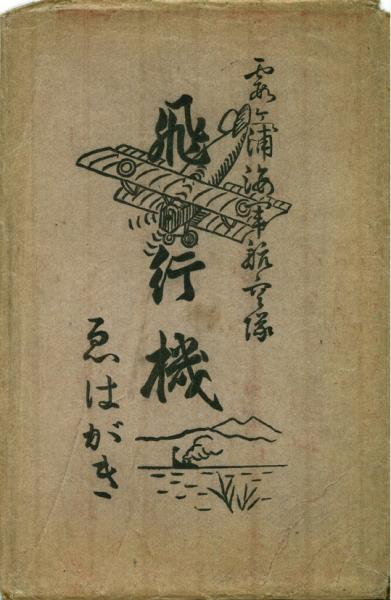 霞ヶ浦海軍航空隊
飛行機
ゑはがき